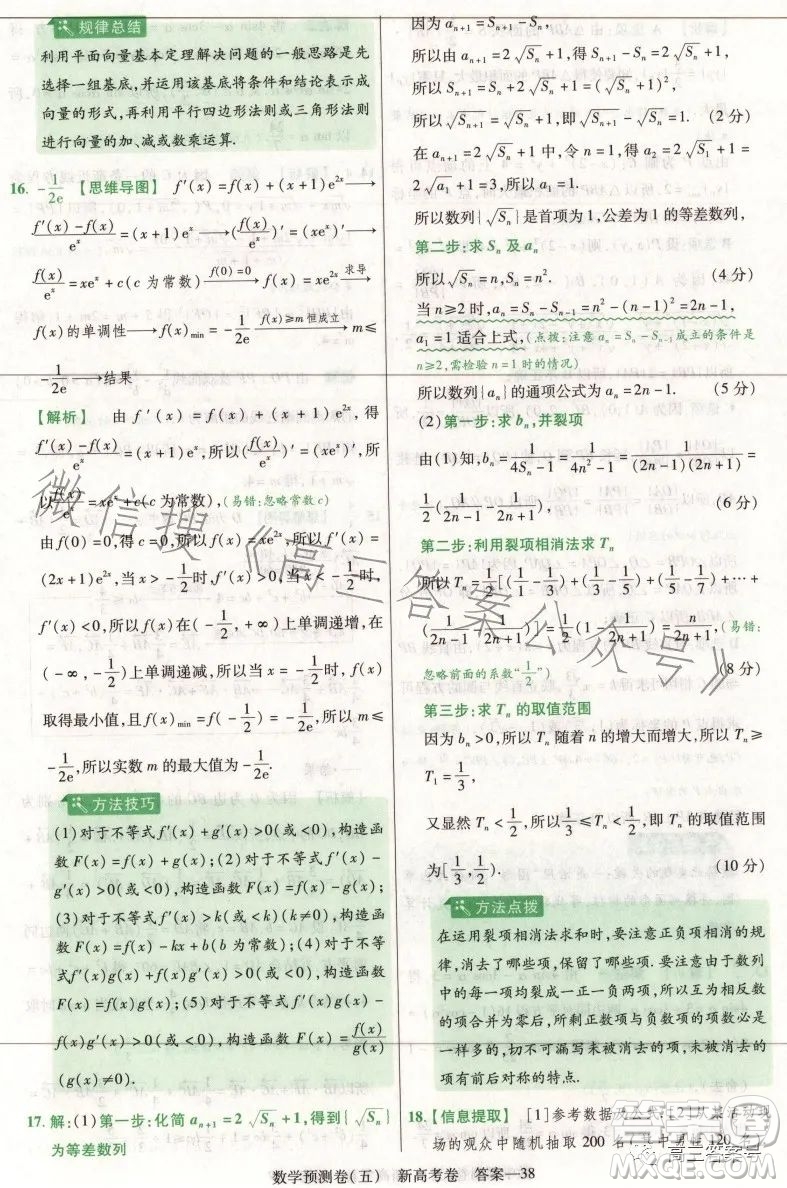 规律总结
利用平面向量基本定理解决问题的一般思路是先
选择一组基底,并运用该基底将条件和结论表示成
向量的形式,再利用平行四边形法则或三角形法则
进行向量的加、减或数乘运算.
16. -1/(2e) 【思维导图】 f′(x)=f(x)+(x+1)e^{2x}⟶
(f′(x)-f(x))/e^x=(x+1)e^x⟶(f(x)/e^x)′=(xe^x)′⟶
f(x)/e^x=xe^x+c(c 为常数)⟶^{f(0)=0} f(x)=xe^{2x}⟶^{求导}
f(x)的单调性⟶f(x)_min=-1/(2e)⟶^{f(x)≥m 恒成立}m≤
-1/(2e)⟶结果
【解析】 由 f′(x)=f(x)+(x+1)e^{2x},得
(f′(x)-f(x))/e^x=(x+1)e^x,所以(f(x)/e^x)′=(xe^x)′,所
以f(x)/e^x=xe^x+c(c 为常数),(易错:忽略常数 c)
由 f(0)=0,得 c=0,所以 f(x)=xe^{2x},所以 f′(x)=
(2x+1)e^{2x},当 x>-1/2时,f′(x)>0,当 x<-1/2时,
f′(x)<0,所以 f(x)在(-1/2,+∞)上单调递增,在
(-∞,-1/2)上单调递减,所以当 x=-1/2时,f(x)
取得最小值,且 f(x)_min=f(-1/2)=-1/(2e),所以 m≤
-1/(2e),所以实数 m 的最大值为-1/(2e).
方法技巧
(1)对于不等式 f′(x)+g′(x)>0(或<0),构造函
数 F(x)=f(x)+g(x);(2)对于不等式 f′(x)-
g′(x)>0(或<0),构造函数 F(x)=f(x)-g(x);
(3)对于不等式 f′(x)>k(或<k)(k≠0),构造函
数 F(x)=f(x)-kx+b(b 为常数);(4)对于不等
式f′(x)g(x)+f(x)g′(x)>0(或<0),构造函数
F(x)=f(x)g(x);(5)对于不等式 f′(x)g(x)-
f(x)g′(x)>0(或<0),构造函数 F(x)=f(x)/g(x)
(g(x)≠0).
17. 解:(1)第一步:化简 a_{n+1}=2√S_n+1,得到{√S_n}
为等差数列
因为 a_{n+1}=S_{n+1}-S_n,
所以由 a_{n+1}=2√S_n+1,得 S_{n+1}-S_n=2√S_n+1,
所以 S_{n+1}=(√S_n+1)²,
所以√S_{n+1}=√S_n+1,即√S_{n+1}-√S_n=1. (2 分)
在 a_{n+1}=2√S_n+1 中,令 n=1,得 a_2=2√S_1+1=
2√a_1+1=3,所以 a_1=1.
所以数列{√S_n}是首项为 1,公差为 1 的等差数列,
第二步:求 S_n 及 a_n
所以√S_n=n,S_n=n². (4 分)
当 n≥2 时,a_n=S_n-S_{n-1}=n²-(n-1)²=2n-1,
a_1=1 适合上式,(点拨:注意 a_n=S_n-S_{n-1}成立的条件是
n≥2,需检验 n=1 时的情况)
所以数列{a_n}的通项公式为 a_n=2n-1. (5 分)
(2)第一步:求 b_n,并裂项
由(1)知,b_n=1/(4S_n-1)=1/(4n²-1)=1/((2n-1)(2n+1))=
1/2(1/(2n-1)-1/(2n+1)). (6 分)
第二步:利用裂项相消法求 T_n
所以 T_n=1/2[(1-1/3)+(1/3-1/5)+(1/5-1/7)+…+
(1/(2n-1)-1/(2n+1))]=1/2(1-1/(2n+1))=n/(2n+1),(易错:
忽略前面的系数“1/2”) (8 分)
第三步:求 T_n 的取值范围
因为 b_n>0,所以 T_n 随着 n 的增大而增大,所以 T_n≥
T_1=1/3,
又显然 T_n<1/2,所以1/3≤T_n<1/2,即 T_n 的取值范围
为[1/3,1/2). (10 分)
方法点拨
在运用裂项相消法求和时,要注意正负项相消的规
律,消去了哪些项,保留了哪些项.有时由于数列
中的每一项均裂成一正一负两项,所以互为相反数
的项合并为零后,所剩正数项与负数项的项数必是
一样多的,切不可漏写未被消去的项,未被消去的项
有前后对称的特点.
18. 【信息提取】 [1]参考数据及公式;[2]从某活动现
场的观众中随机抽取 200 名(其中男性 120 名
数学预测卷(五) 新高考卷 答案—38
微信搜《高三答案公众号》
高三答案号